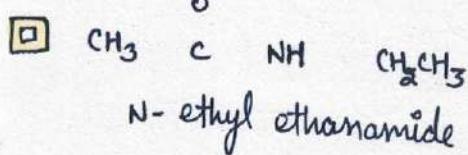 O
CH3 C NH CH2CH3
N- ethyl ethanamide